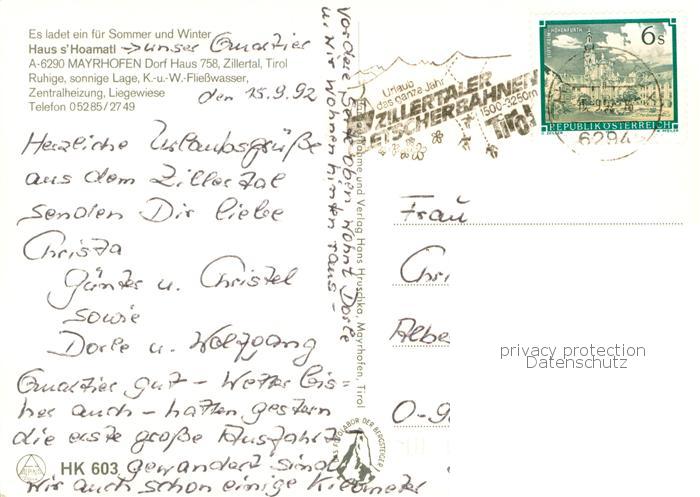 Es ladet ein für Sommer und Winter
Haus s'Hoamatl → unser Quartier
A-6290 MAYRHOFEN Dorf Haus 758, Zillertal, Tirol
Ruhige, sonnige Lage, K.-u.-W.-Fließwasser,
Zentralheizung, Liegewiese
Telefon 05285/2749
den 15.9.92
Herzliche Urlaubsgrüße
aus dem Zillertal
senden Dir liebe
Christa
Günter u. Christel
sowie
Dorle u. Wolfgang
Quartier gut - Wetter bis=
her auch - hatten gestern
die erste große Ausfahrt
gewandert sind
wir auch schon einige Kilometer
HK 603
Vordere Seite oben wohnt Dorle
u. wir wohnen hinten raus -
Aufnahme und Verlag Hans Hruschka, Mayrhofen, Tirol
FOTOLABOR DER BERGSTEIGER
Urlaub
das ganze Jahr
ZILLERTALER
GLETSCHERBAHNEN
1500-3250m
Tirol
STIFT REIN-HOHENFURTH
6 S
REPUBLIK ÖSTERREICH
6294
Frau
Chri
Albe
O-9
privacy protection
Datenschutz